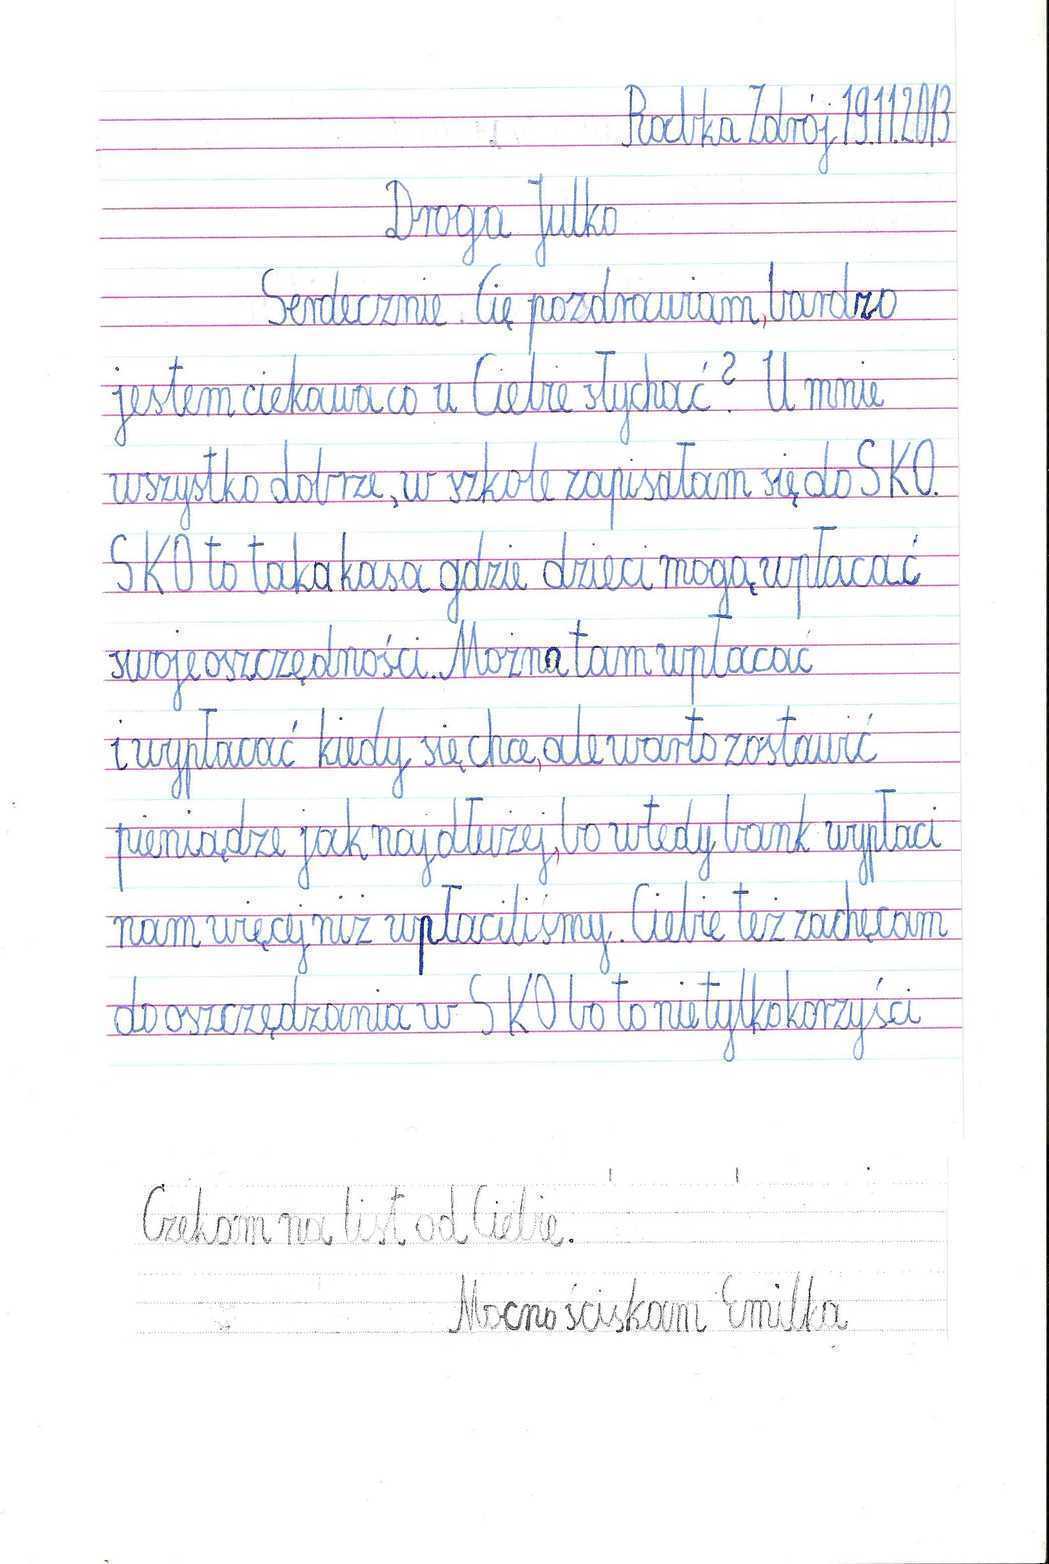 Rabka Zdrój, 19.11.2013
Droga Julko
Serdecznie Cię pozdrawiam, bardzo
jestem ciekawa co u Ciebie słychać? U mnie
wszystko dobrze, w szkole zapisałam się do SKO.
SKO to taka kasa gdzie dzieci mogą wpłacać
swoje oszczędności. Można tam wpłacać
i wypłacać kiedy się chce, ale warto zostawić
pieniądze jak najdłużej, bo wtedy bank wypłaci
nam więcej niż wpłaciliśmy. Ciebie też zachęcam
do oszczędzania w SKO bo to nie tylko korzyści
Czekam na list od Ciebie.
Mocno ściskam Emilka